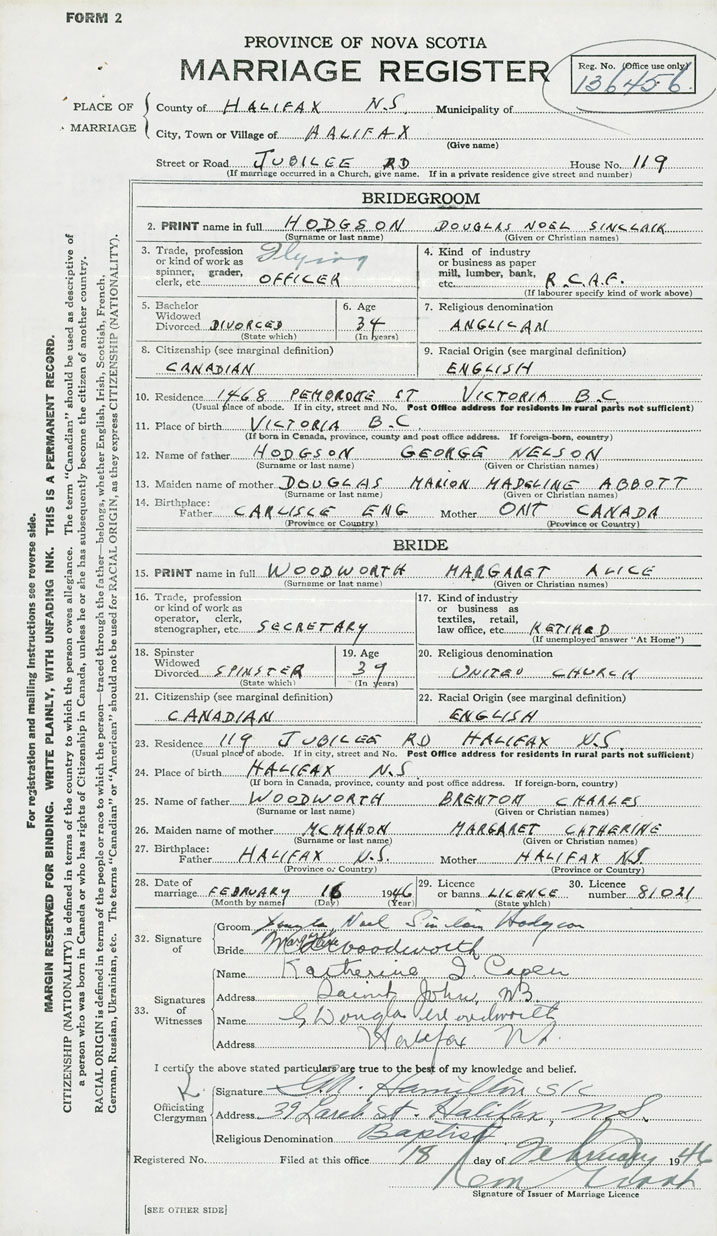 FORM 2
PROVINCE OF NOVA SCOTIA
MARRIAGE REGISTER
Reg. No. (Office use only)
136456.
PLACE OF MARRIAGE
County of HALIFAX N.S. Municipality of
City, Town or Village of HALIFAX
(Give name)
Street or Road JUBILEE RD House No. 119
(If marriage occurred in a Church, give name. If in a private residence give street and number)
BRIDEGROOM
2. PRINT name in full HODGSON DOUGLAS NOEL SINCLAIR
(Surname or last name) (Given or Christian names)
3. Trade, profession or kind of work as spinner, grader, clerk, etc. Flying OFFICER
4. Kind of industry or business as paper mill, lumber, bank, etc. R.C.A.F.
(If labourer specify kind of work above)
5. Bachelor Widowed Divorced DIVORCED
(State which)
6. Age 34
(In years)
7. Religious denomination
ANGLICAN
8. Citizenship (see marginal definition)
CANADIAN
9. Racial Origin (see marginal definition)
ENGLISH
10. Residence 1468 PEMBROKE ST VICTORIA B.C.
(Usual place of abode. If in city, street and No. Post Office address for residents in rural parts not sufficient)
11. Place of birth VICTORIA B.C.
(If born in Canada, province, county and post office address. If foreign-born, country)
12. Name of father HODGSON GEORGE NELSON
(Surname or last name) (Given or Christian names)
13. Maiden name of mother DOUGLAS MARION MADELINE ABBOTT
(Surname or last name) (Given or Christian names)
14. Birthplace:
Father CARLISLE ENG Mother ONT CANADA
(Province or Country) (Province or Country)
BRIDE
15. PRINT name in full WOODWORTH MARGARET ALICE
(Surname or last name) (Given or Christian names)
16. Trade, profession or kind of work as operator, clerk, stenographer, etc. SECRETARY
17. Kind of industry or business as textiles, retail, law office, etc. RETIRED
(If unemployed answer "At Home")
18. Spinster Widowed Divorced SPINSTER
(State which)
19. Age 39
(In years)
20. Religious denomination
UNITED CHURCH
21. Citizenship (see marginal definition)
CANADIAN
22. Racial Origin (see marginal definition)
ENGLISH
23. Residence 119 JUBILEE RD HALIFAX N.S.
(Usual place of abode. If in city, street and No. Post Office address for residents in rural parts not sufficient)
24. Place of birth HALIFAX N.S.
(If born in Canada, province, county and post office address. If foreign-born, country)
25. Name of father WOODWORTH BRENTON CHARLES
(Surname or last name) (Given or Christian names)
26. Maiden name of mother MCMAHON MARGARET CATHERINE
(Surname or last name) (Given or Christian names)
27. Birthplace:
Father HALIFAX N.S. Mother HALIFAX N.S.
(Province or Country) (Province or Country)
28. Date of marriage FEBRUARY 16 1946
(Month by name) (Day) (Year)
29. Licence or banns LICENCE
(State which)
30. Licence number 81021
32. Signature of
Groom Douglas Noel Sinclair Hodgson
Bride Woodworth
33. Signatures of Witnesses
Name Katherine I. Capen
Address Saint John, N.B.
Name G Douglas Woodworth
Address Halifax N.S.
I certify the above stated particulars are true to the best of my knowledge and belief.
Officiating Clergyman
Signature G.M. Hamilton
Address 39 Larch St. Halifax, N.S.
Religious Denomination Baptist
Registered No. Filed at this office 18 day of February 1946
Signature of Issuer of Marriage Licence
[SEE OTHER SIDE]
For registration and mailing instructions see reverse side.
MARGIN RESERVED FOR BINDING. WRITE PLAINLY, WITH UNFADING INK. THIS IS A PERMANENT RECORD.
CITIZENSHIP (NATIONALITY) is defined in terms of the country to which the person owes allegiance. The term "Canadian" should be used as descriptive of
a person who was born in Canada or who has rights of Citizenship in Canada, unless he or she has subsequently become the citizen of another country.
RACIAL ORIGIN is defined in terms of the people or race to which the person—traced through the father—belongs, whether English, Irish, Scottish, French,
German, Russian, Ukrainian, etc. The terms "Canadian" or "American" should not be used for RACIAL ORIGIN, as they express CITIZENSHIP (NATIONALITY).